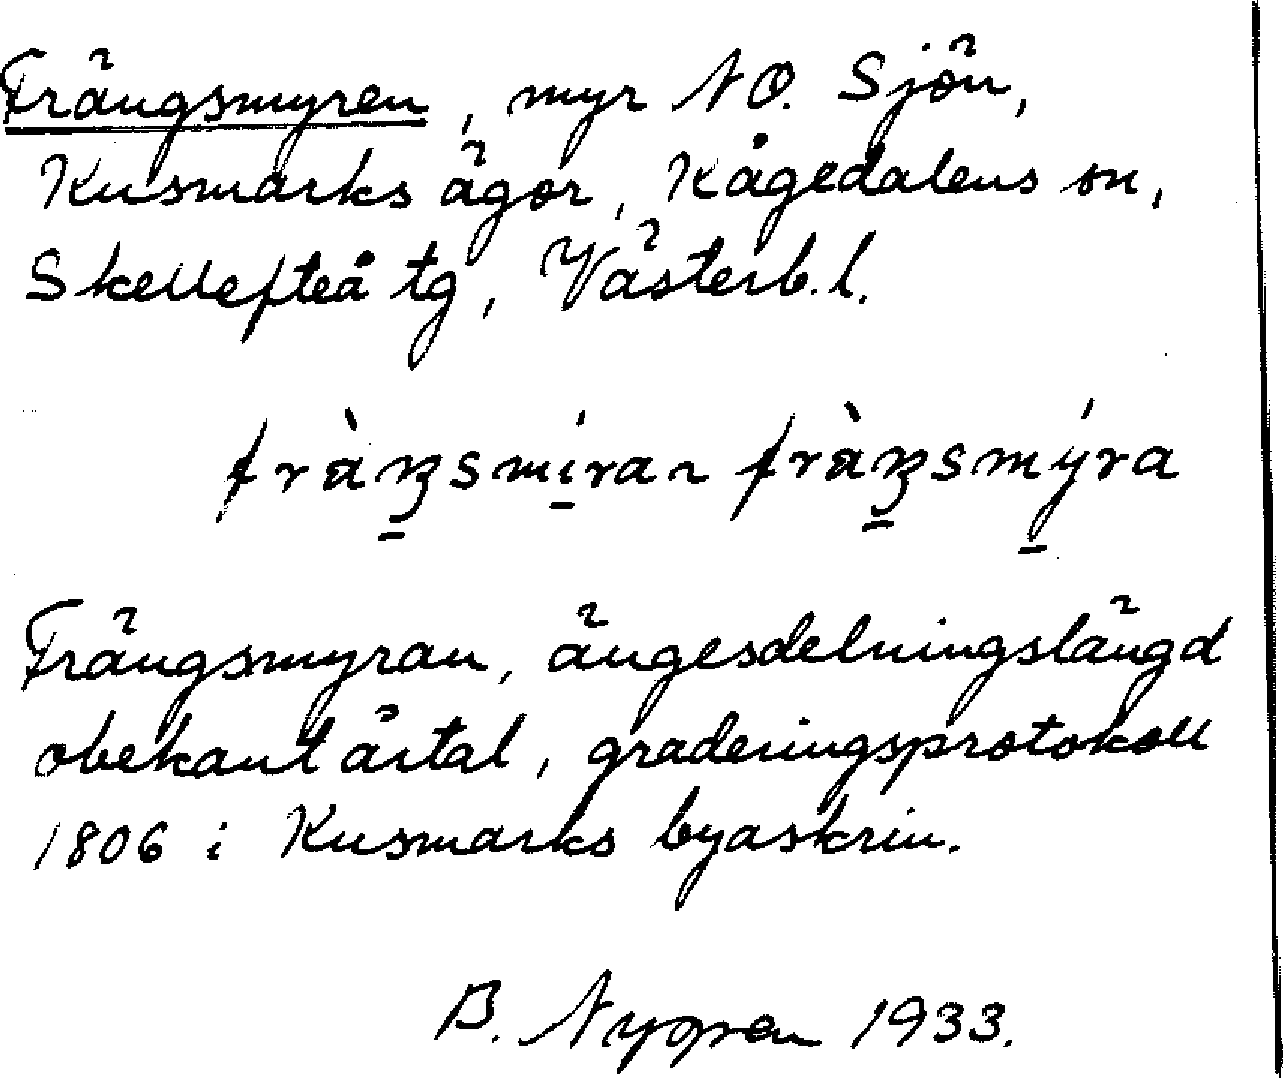 Frängsmyren, myr NO. Sjön,
Kusmarks ägor, Kågedalens sn,
Skellefteå tg, Västerb. l.
fràŋsmíra ~ fràŋsmýra
Frängsmyran, ängesdelningslängd
obekant årtal, graderingsprotokoll
1806 i Kusmarks byaskrin.
B. Nygren 1933.